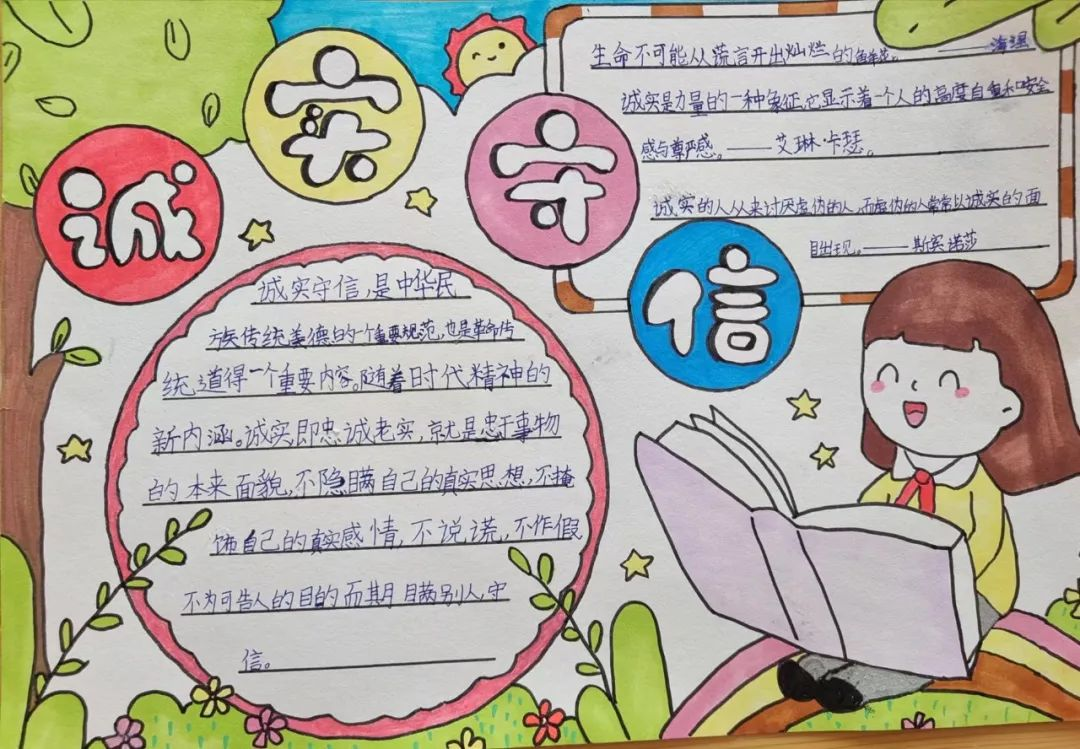 诚实守信
生命不可能从谎言开出灿烂的鲜花。——海涅
诚实是力量的一种象征,它显示着一个人的高度自重和内心的安全
感与尊严感。——艾琳·卡瑟。
诚实的人从来讨厌虚伪的人,而虚伪的人常常以诚实的面
目出现。——斯宾诺莎
诚实守信,是中华民
族传统美德的一个重要规范,也是革命传
统道得一个重要内容。随着时代精神的
新内涵。诚实即忠诚老实,就是忠于事物
的本来面貌,不隐瞒自己的真实思想,不掩
饰自己的真实感情,不说谎,不作假
不为可告人的目的而期瞒别人,守
信。